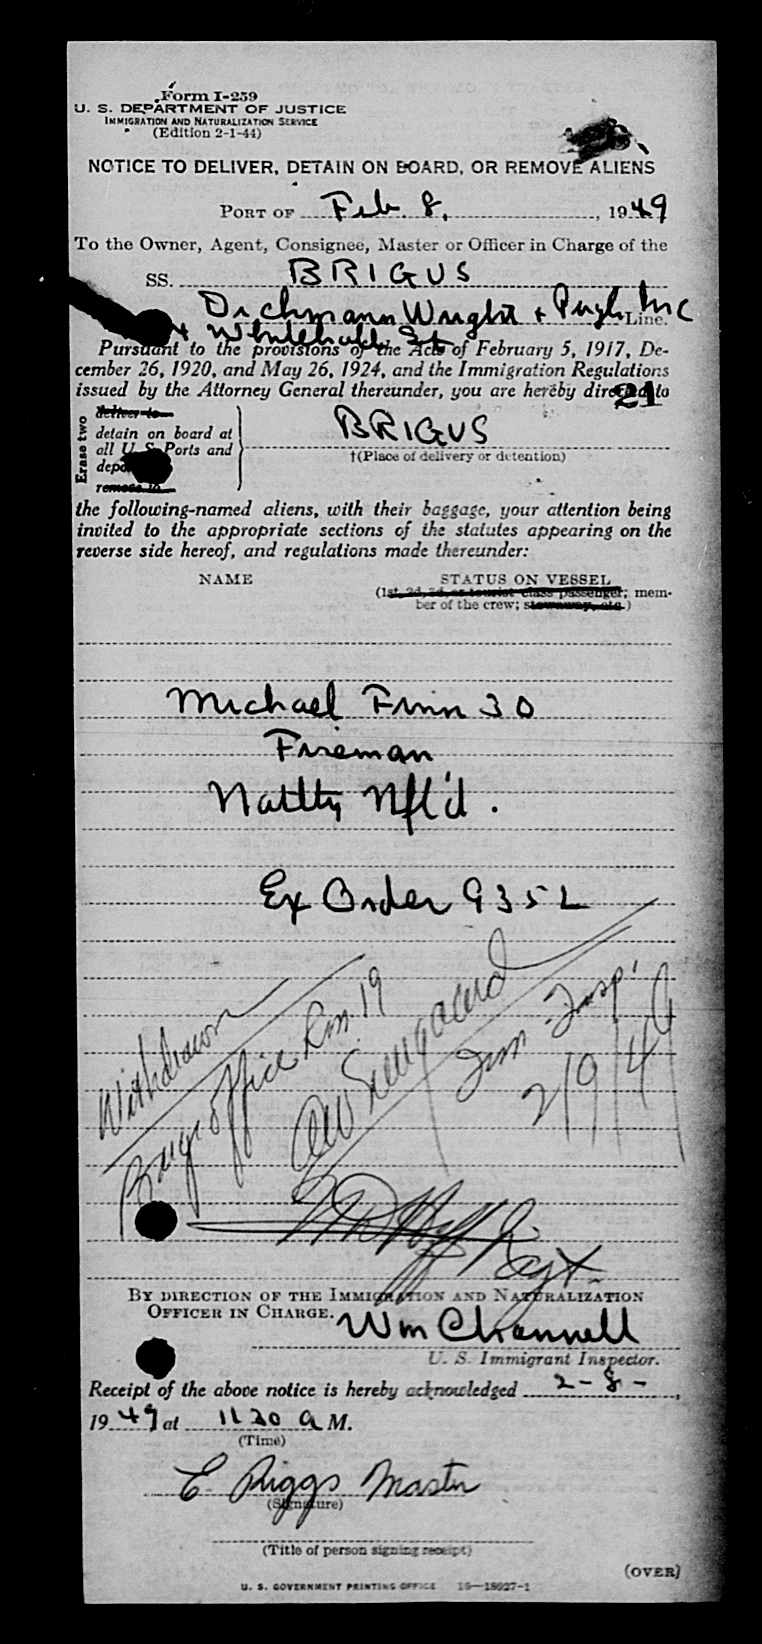 Form I-259
U. S. DEPARTMENT OF JUSTICE
IMMIGRATION AND NATURALIZATION SERVICE
(Edition 2-1-44)
NOTICE TO DELIVER, DETAIN ON BOARD, OR REMOVE ALIENS
PORT OF Feb. 8, , 1949
To the Owner, Agent, Consignee, Master or Officer in Charge of the
SS. BRIGUS
Dichmann Wright + Pugh Inc Line.
Whitehall St
Pursuant to the provisions of the Acts of February 5, 1917, De-
cember 26, 1920, and May 26, 1924, and the Immigration Regulations
issued by the Attorney General thereunder, you are hereby directed to
21
Erase two
deliver to
detain on board at
all U. S. Ports and
remove to
BRIGUS
†(Place of delivery or detention)
the following-named aliens, with their baggage, your attention being
invited to the appropriate sections of the statutes appearing on the
reverse side hereof, and regulations made thereunder:
NAME STATUS ON VESSEL
(1st, 2d, 3d, or tourist class passenger; mem-
ber of the crew; stowaway, etc.)
Michael Finn 30
Fireman
Natlty Nfl'd.
Ex Order 9352
Withdrawn
Barge Office Rm. 19
Imm. Insp.
2/9/49
BY DIRECTION OF THE IMMIGRATION AND NATURALIZATION
OFFICER IN CHARGE.
Wm Channell
U. S. Immigrant Inspector.
Receipt of the above notice is hereby acknowledged 2-8-,
1949 at 11 20 a M.
(Time)
E Riggs Master
(Signature)
(Title of person signing receipt)
(OVER)
U. S. GOVERNMENT PRINTING OFFICE 16—18927-1